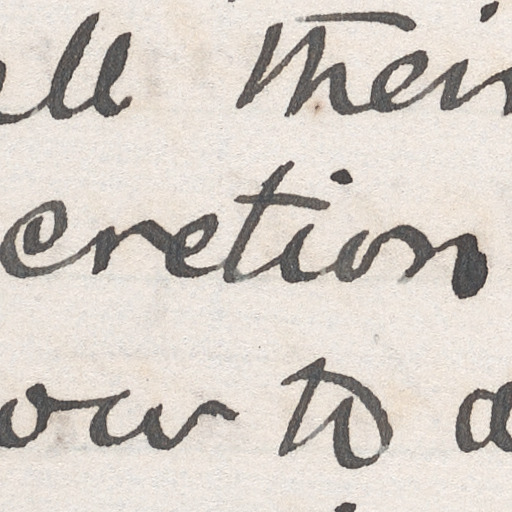 ell their
cretion
ow to a